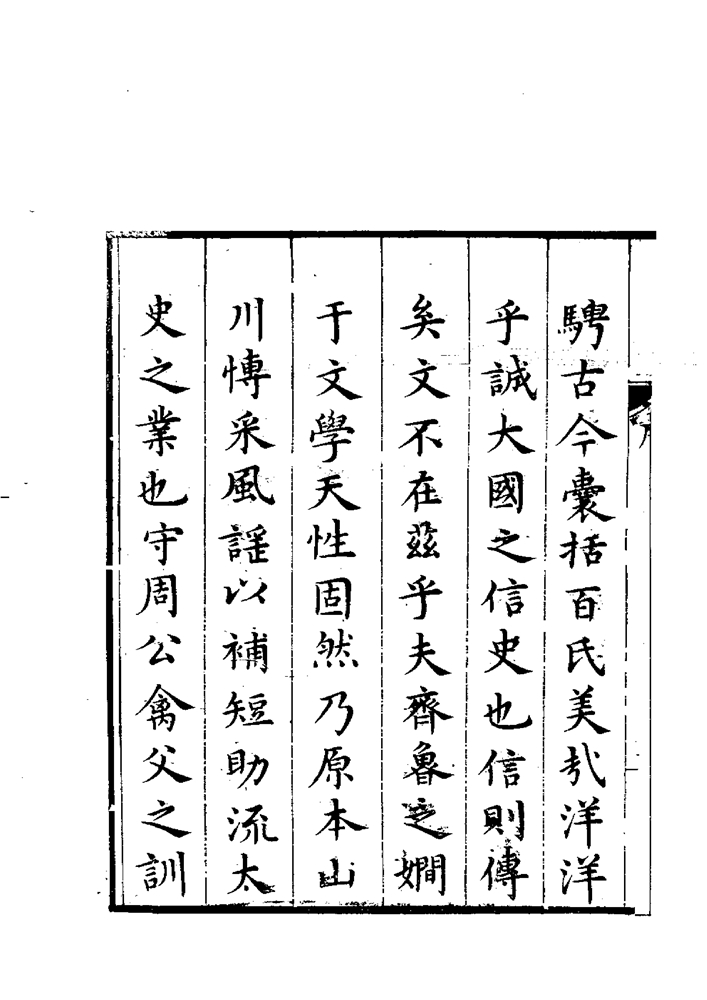 騁古今囊括百氏美哉洋洋
乎誠大國之信史也信則傳
矣文不在茲乎夫齊魯之嫺
于文學天性固然乃原本山
川愽采風謡以補短助流太
史之業也守周公禽父之訓